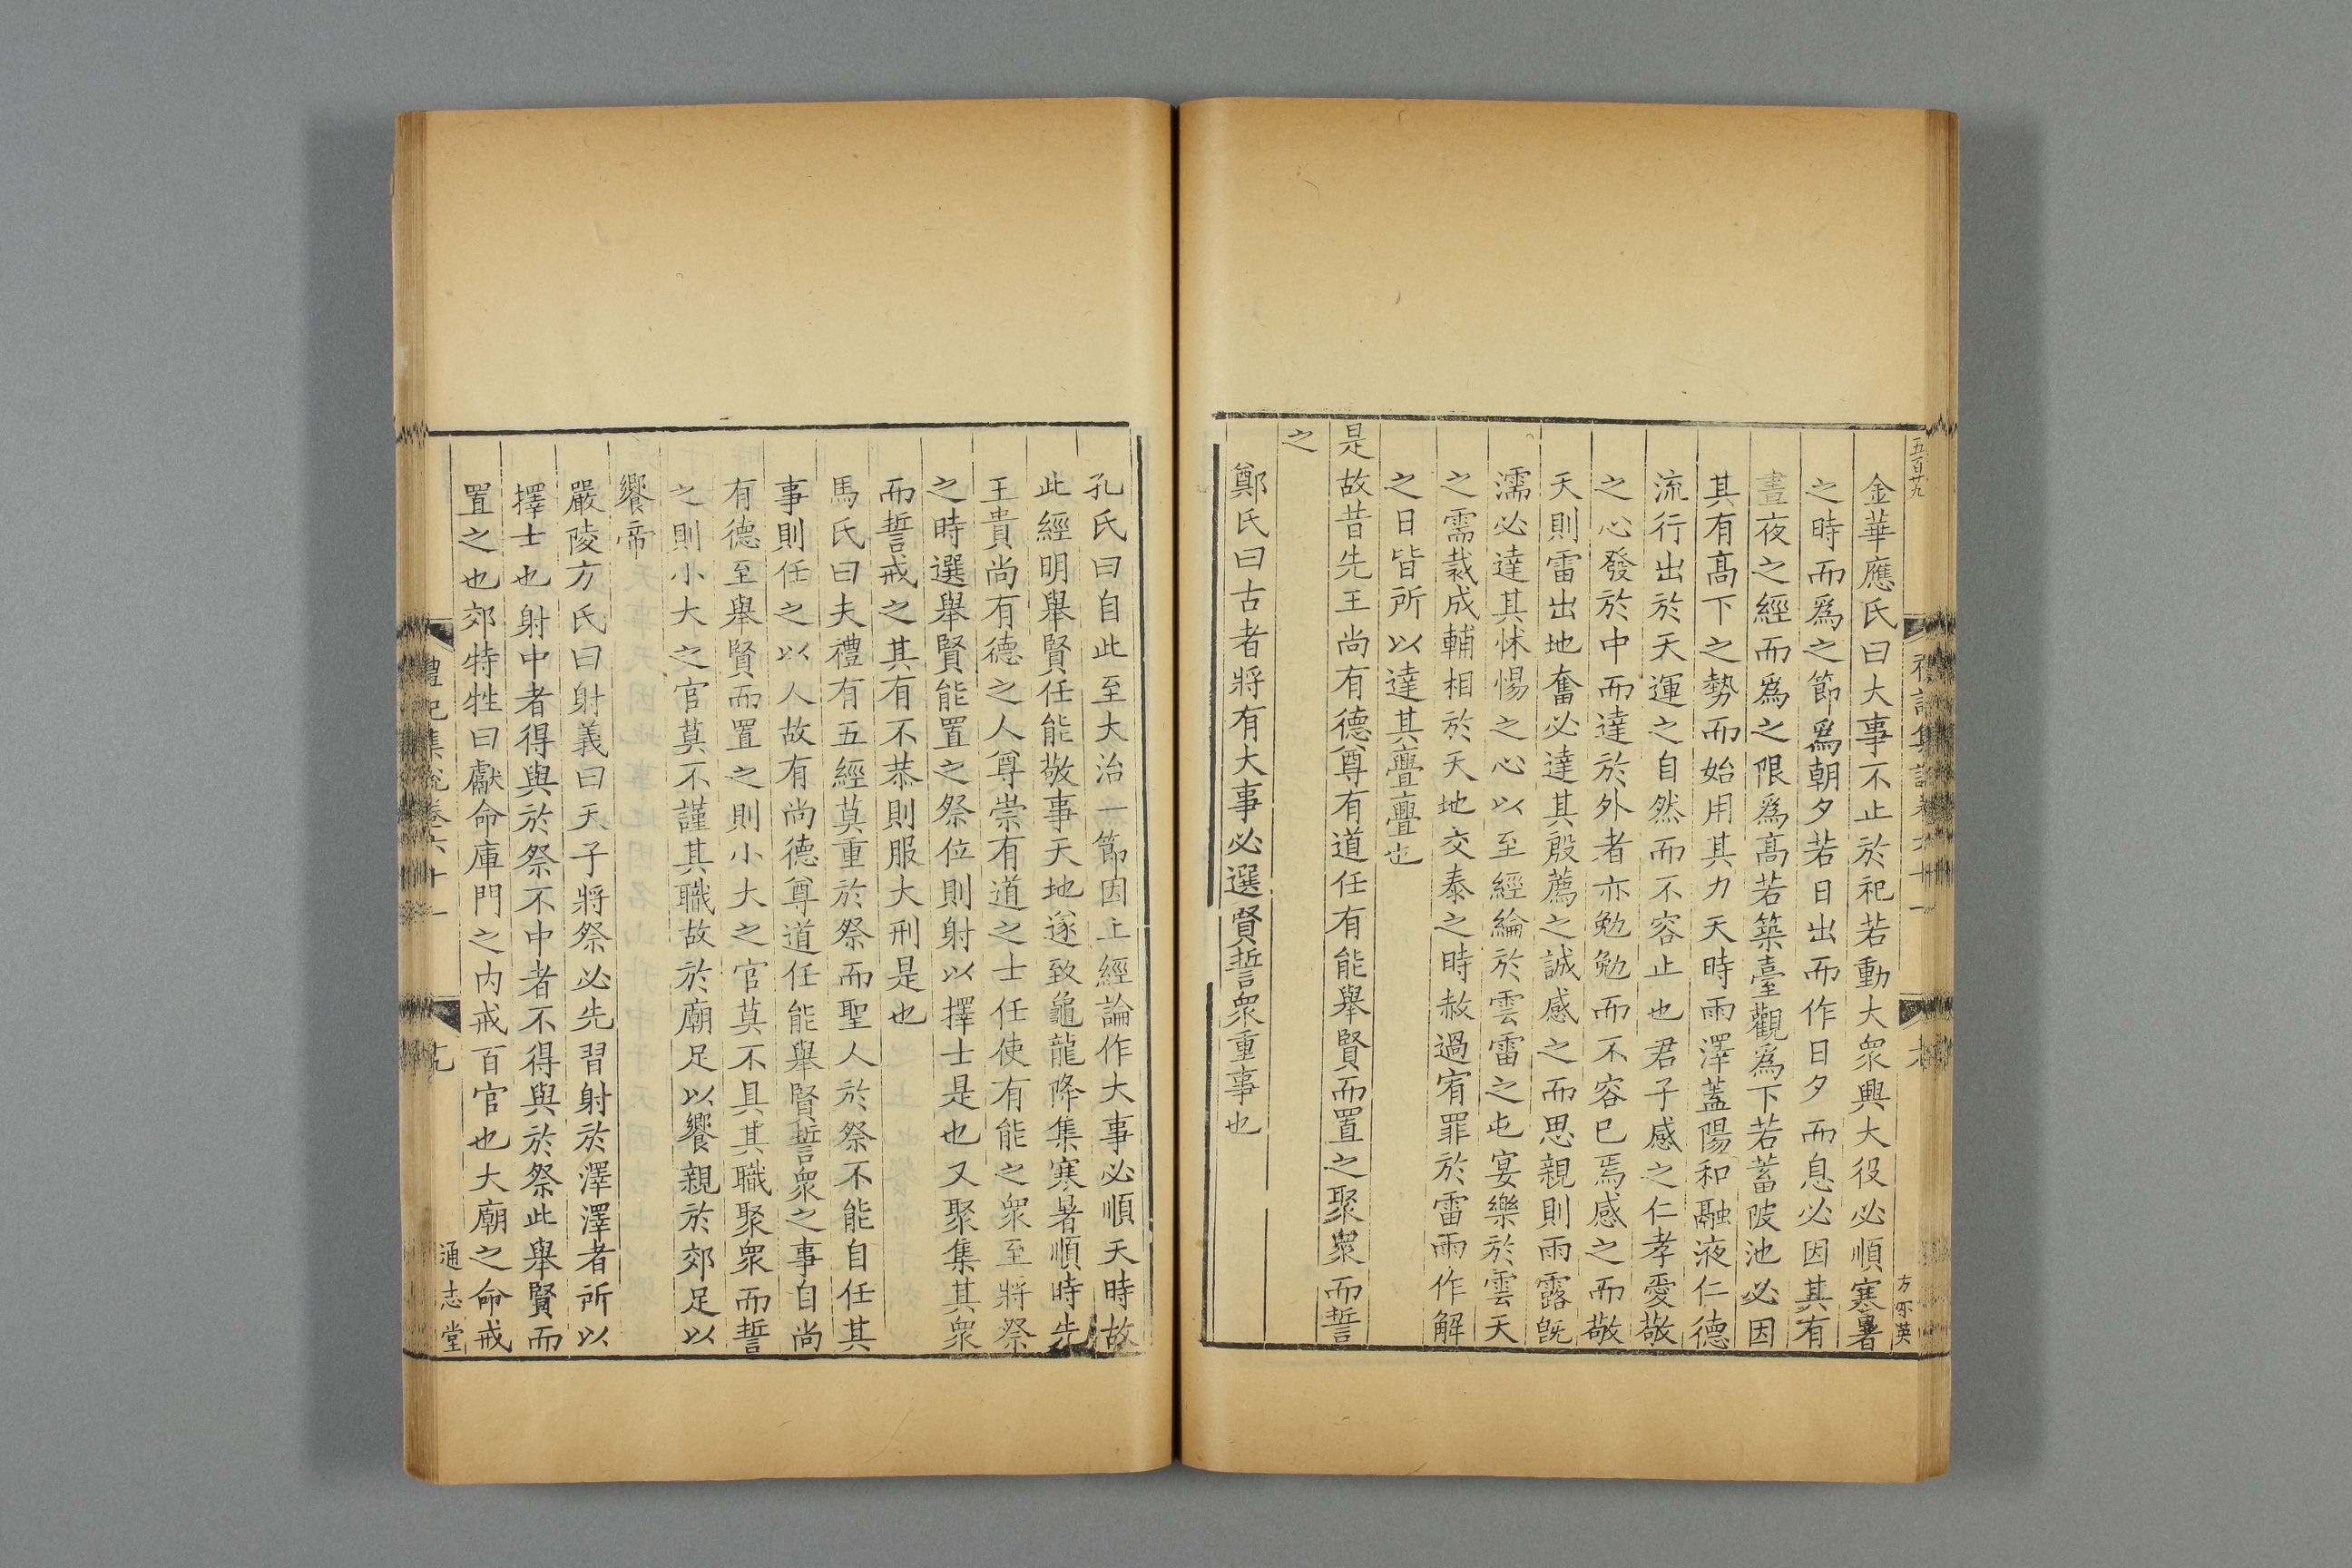 五百廿九
金華應氏曰大事不止於祀若動大衆興大役必順寒暑
之時而爲之節爲朝夕若日出而作日夕而息必因其有
晝夜之經而爲之限爲高若築臺觀爲下若蓄陂池必因
其有髙下之勢而始用其力天時雨澤蓋陽和融液仁德
流行出於天運之自然而不容止也君子感之仁孝愛敬
之心發於中而達於外者亦勉勉而不容已焉感之而敬
天則雷出地奮必達其殷薦之誠感之而思親則雨露旣
濡必達其怵惕之心以至經綸於雲雷之屯宴樂於雲天
之需裁成輔相於天地交泰之時赦過宥罪於雷雨作解
之日皆所以達其亹亹也
是故昔先王尚有德尊有道任有能舉賢而置之聚衆而誓
之
鄭氏曰古者將有大事必選賢誓衆重事也
孔氏曰自此至大治一節因上經論作大事必順天時故
此經明舉賢任能敬事天地遂致龜龍降集寒暑順時先
王貴尚有德之人尊崇有道之士任使有能之衆至將祭
之時選舉賢能置之祭位則射以擇士是也又聚集其衆
而誓戒之其有不恭則服大刑是也
馬氏曰夫禮有五經莫重於祭而聖人於祭不能自任其
事則任之以人故有尚德尊道任能舉賢誓衆之事自尚
有德至舉賢而置之則小大之官莫不具其職聚衆而誓
之則小大之官莫不謹其職故於廟足以饗親於郊足以
饗帝
嚴陵方氏曰射義曰天子將祭必先習射於澤澤者所以
擇士也射中者得與於祭不中者不得與於祭此舉賢而
置之也郊特牲曰獻命庫門之内戒百官也大廟之命戒
禮記集說卷六十一
通志堂